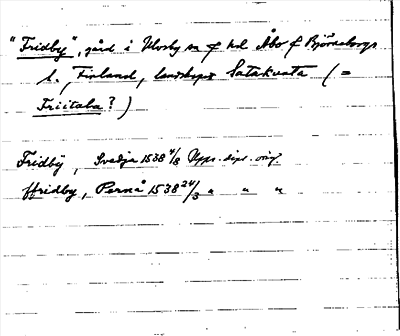 "Fridby", gård i Ulvsby sn f hd Åbo o Björneborgs
l., Finland, landskapet Satakunta (=
Friitala?)
Fridby, Svedja 1538 4/8 Upps. dipl. orig
ffridby, Pernå 1538 24/3 " " "